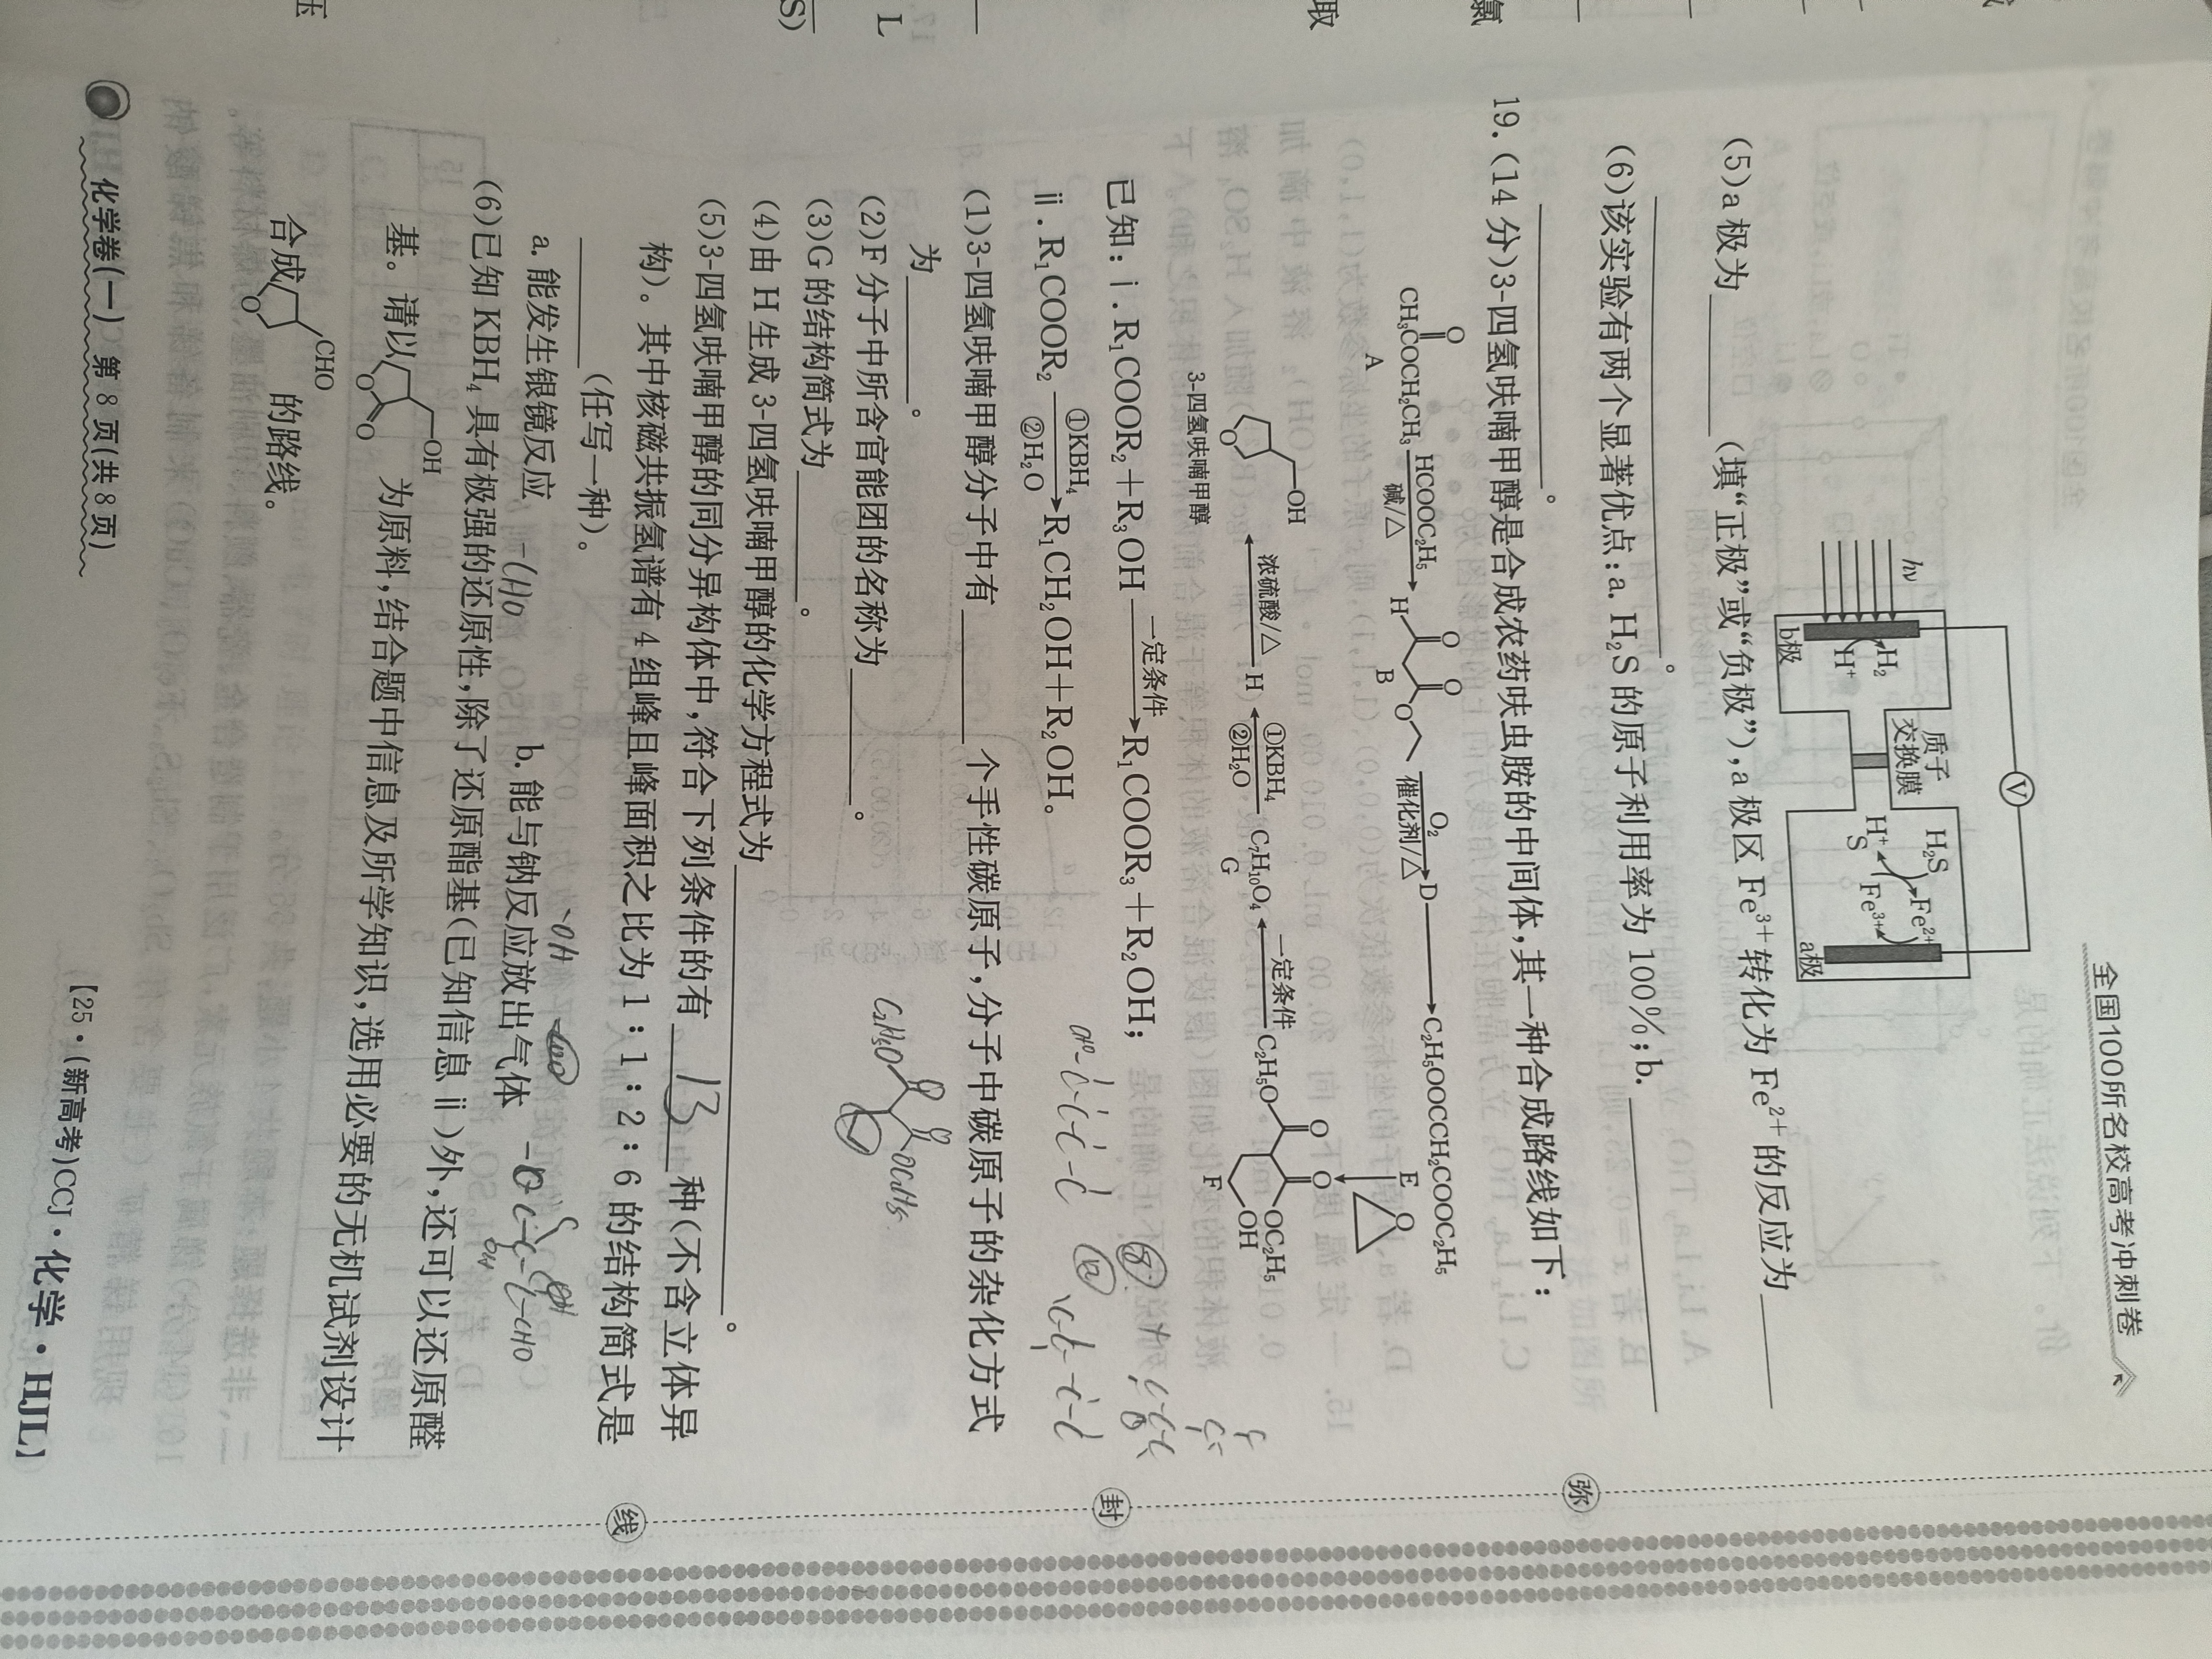 全国100所名校高考冲刺卷
hν
V
质子
交换膜
H₂
H⁺
b极
H₂S
Fe²⁺
H⁺
S
Fe³⁺
a极
(5)a极为______(填“正极”或“负极”),a极区Fe³⁺转化为Fe²⁺的反应为______
______。
(6)该实验有两个显著优点:a. H₂S的原子利用率为100%;b. ______
______。
19. (14分)3-四氢呋喃甲醇是合成农药呋虫胺的中间体,其一种合成路线如下:
O
CH₃COCH₂CH₃
A
HCOOC₂H₅
碱/△
O O
H O
B
O₂
催化剂/△
D
C₂H₅OOCCH₂COOC₂H₅
E
O
O O
C₂H₅O OC₂H₅
OH
F
一定条件
C₇H₁₀O₄
G
①KBH₄
②H₂O
H
浓硫酸/△
OH
O
3-四氢呋喃甲醇
已知:ⅰ. R₁COOR₂+R₃OH 一定条件→ R₁COOR₃+R₂OH;
ⅱ. R₁COOR₂ ①KBH₄ ②H₂O→ R₁CH₂OH+R₂OH。
(1)3-四氢呋喃甲醇分子中有______个手性碳原子,分子中碳原子的杂化方式
为______。
(2)F分子中所含官能团的名称为______。
(3)G的结构简式为______。
(4)由H生成3-四氢呋喃甲醇的化学方程式为______。
(5)3-四氢呋喃甲醇的同分异构体中,符合下列条件的有 13 种(不含立体异
构)。其中核磁共振氢谱有4组峰且峰面积之比为1:1:2:6的结构简式是
______(任写一种)。
a. 能发生银镜反应 b. 能与钠反应放出气体
(6)已知KBH₄具有极强的还原性,除了还原酯基(已知信息ⅱ)外,还可以还原醛
基。请以 OH O O 为原料,结合题中信息及所学知识,选用必要的无机试剂设计
合成 CHO O 的路线。
化学卷(一) 第8页(共8页)
【25·(新高考)CCJ·化学·HJL】
弥
封
线
氯
取
L
S)
压